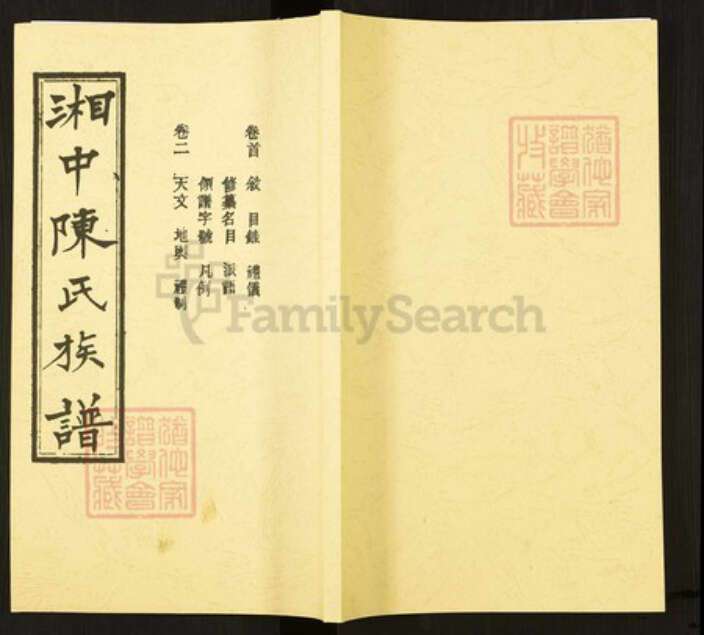 湘中陳氏族譜
卷首 敘 目錄 禮儀
修纂名目 派語
領譜字號 凡例
卷二 天文 地輿 禮制
FamilySearch
譜學會
藏
譜學會
藏